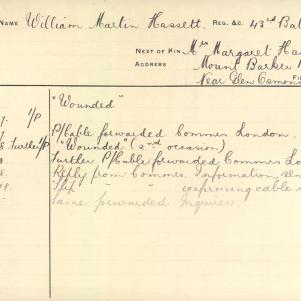 NAME William Martin Hassett. REG. &C. 43rd Bat
NEXT OF KIN Mrs Margaret Has
ADDRESS Mount Barker R
Near Glen Osmond
"Wounded"
P/Cable forwarded Commdr London.
"Wounded" (2nd occasion)
Further P/Cable forwarded Commdr Lo
Reply from Commdr. Information
" " confirming cable
Same forwarded Inquirer.